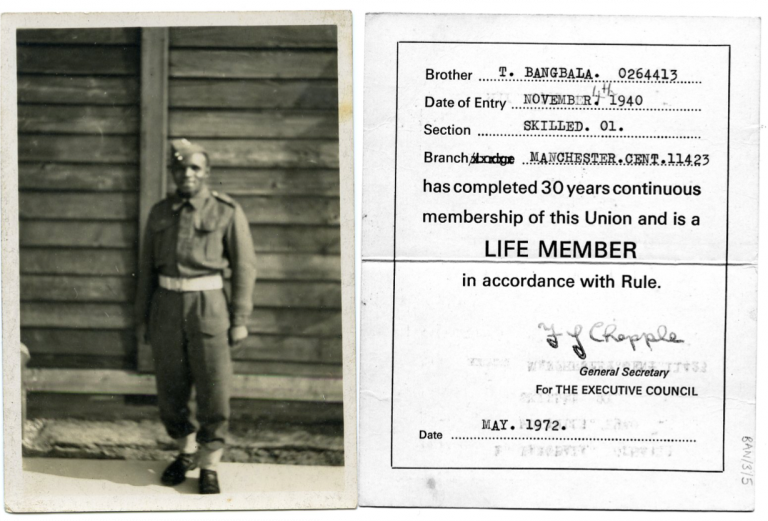 Brother T. BANGBALA. 0264413
Date of Entry NOVEMBER. 4th 1940
Section SKILLED. 01.
Branch/Lodge MANCHESTER.CENT.11423
has completed 30 years continuous
membership of this Union and is a
LIFE MEMBER
in accordance with Rule.
F J Chapple
General Secretary
For THE EXECUTIVE COUNCIL
Date MAY. 1972.
BAN/3/5